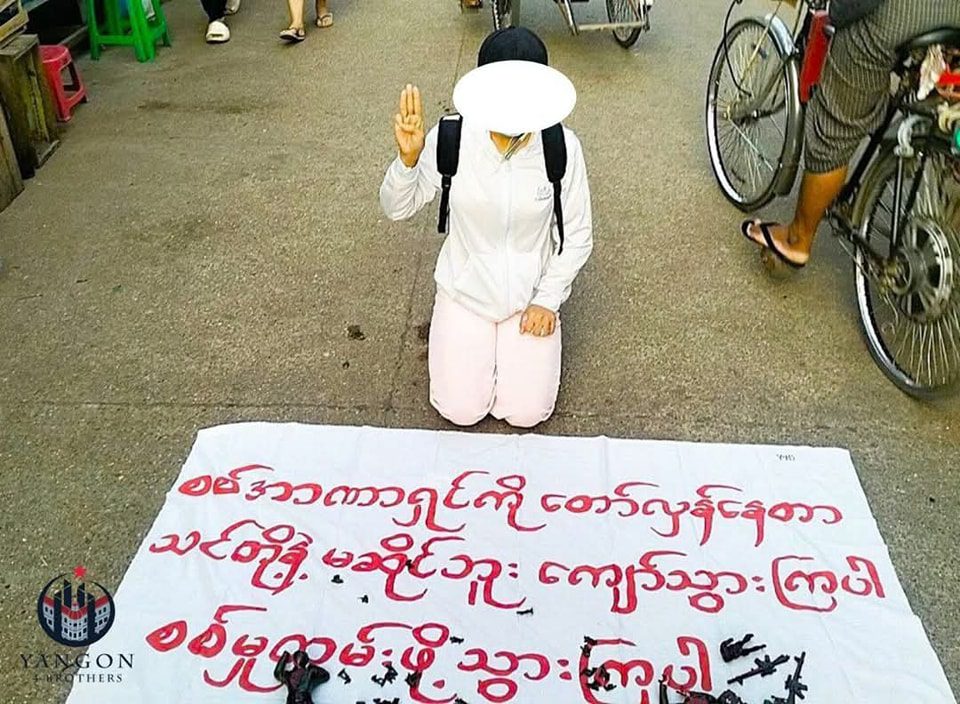 စစ်အာဏာရှင်ကို တော်လှန်နေတာ
သင်တို့နဲ့ မဆိုင်ဘူး ကျော်သွားကြပါ
စစ်မှုထမ်းဖို့ သွားကြပါ
YANGON
BROTHERS